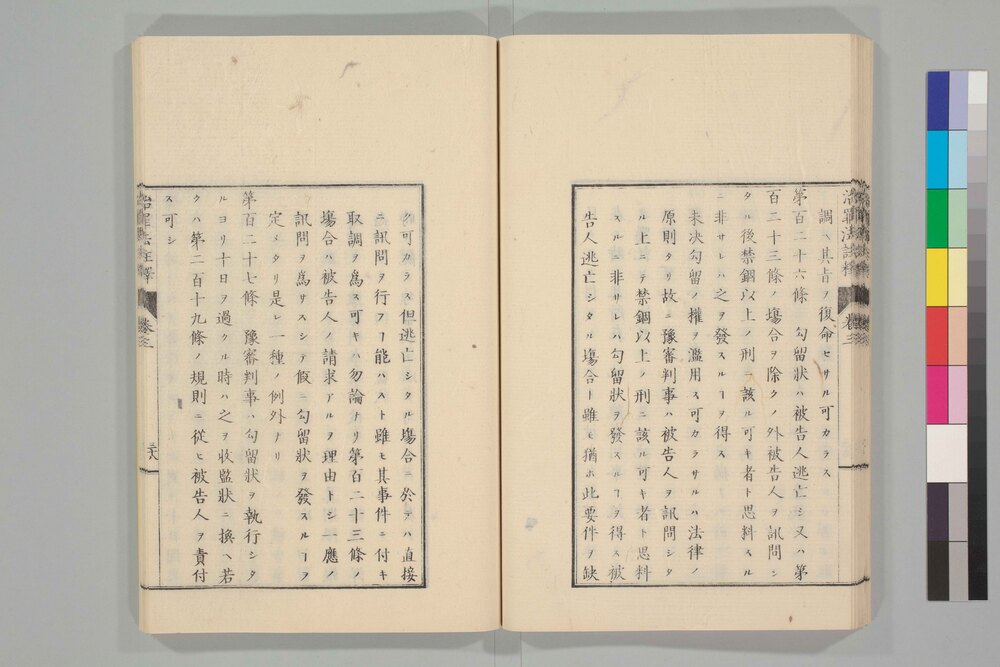 治罪法註釋 卷三
調ヘ其旨ヲ復命セサル可カラス
第百二十六條 勾留狀ハ被告人逃亡シ又ハ第
百二十三條ノ塲合ヲ除クノ外被告人ヲ訊問シ
タル後禁錮以上ノ刑ニ該ル可キ者ト思料スル
ニ非サレハ之ヲ發スルヿヲ得ス
未決勾留ノ權ヲ濫用ス可カラサルハ法律ノ
原則タリ故ニ豫審判事ハ被告人ヲ訊問シタ
ル上ニテ禁錮以上ノ刑ニ該ル可キ者ト思料
スルニ非サレハ勾留狀ヲ發スルヿヲ得ス被
告人逃亡シタル塲合ト雖モ猶ホ此要件ヲ缺
ク可カラス但逃亡シタル塲合ニ於テハ直接
ニ訊問ヲ行フヿ能ハスト雖モ其事件ニ付キ
取調ヲ爲ス可キハ勿論ナリ第百二十三條ノ
塲合ハ被告人ノ請求アルヲ理由トシ一應ノ
訊問ヲ爲サスシテ假ニ勾留狀ヲ發スルヿヲ
定メタリ是レ一種ノ例外ナリ
第百二十七條 豫審判事ハ勾留狀ヲ執行シタ
ルヨリ十日ヲ過クル時ハ之ヲ收監狀ニ換ヘ若
クハ第二百十九條ノ規則ニ從ヒ被告人ヲ責付
ス可シ
治罪法註釋 卷三 三六